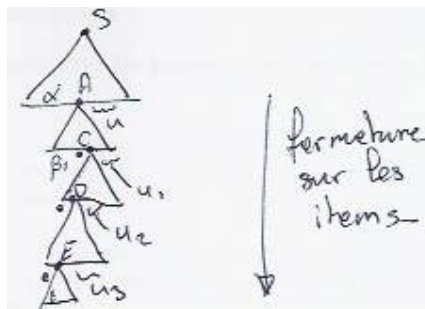 S
α A
u
β₁ C
u₁
D
u₂
E
u₃
fermeture
sur les
items